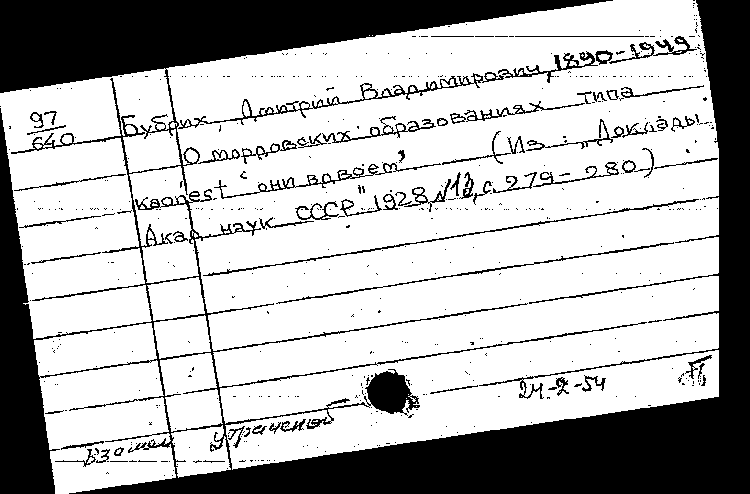 97
640
Бубрих, Дмитрий Владимирович, 1890-1949
О мордовских образованиях типа
kaońest "они вдвоем". (Из: „Доклады
Акад наук СССР" 1928, №13, с. 279-280)
24-2-54
Взамен утраченной